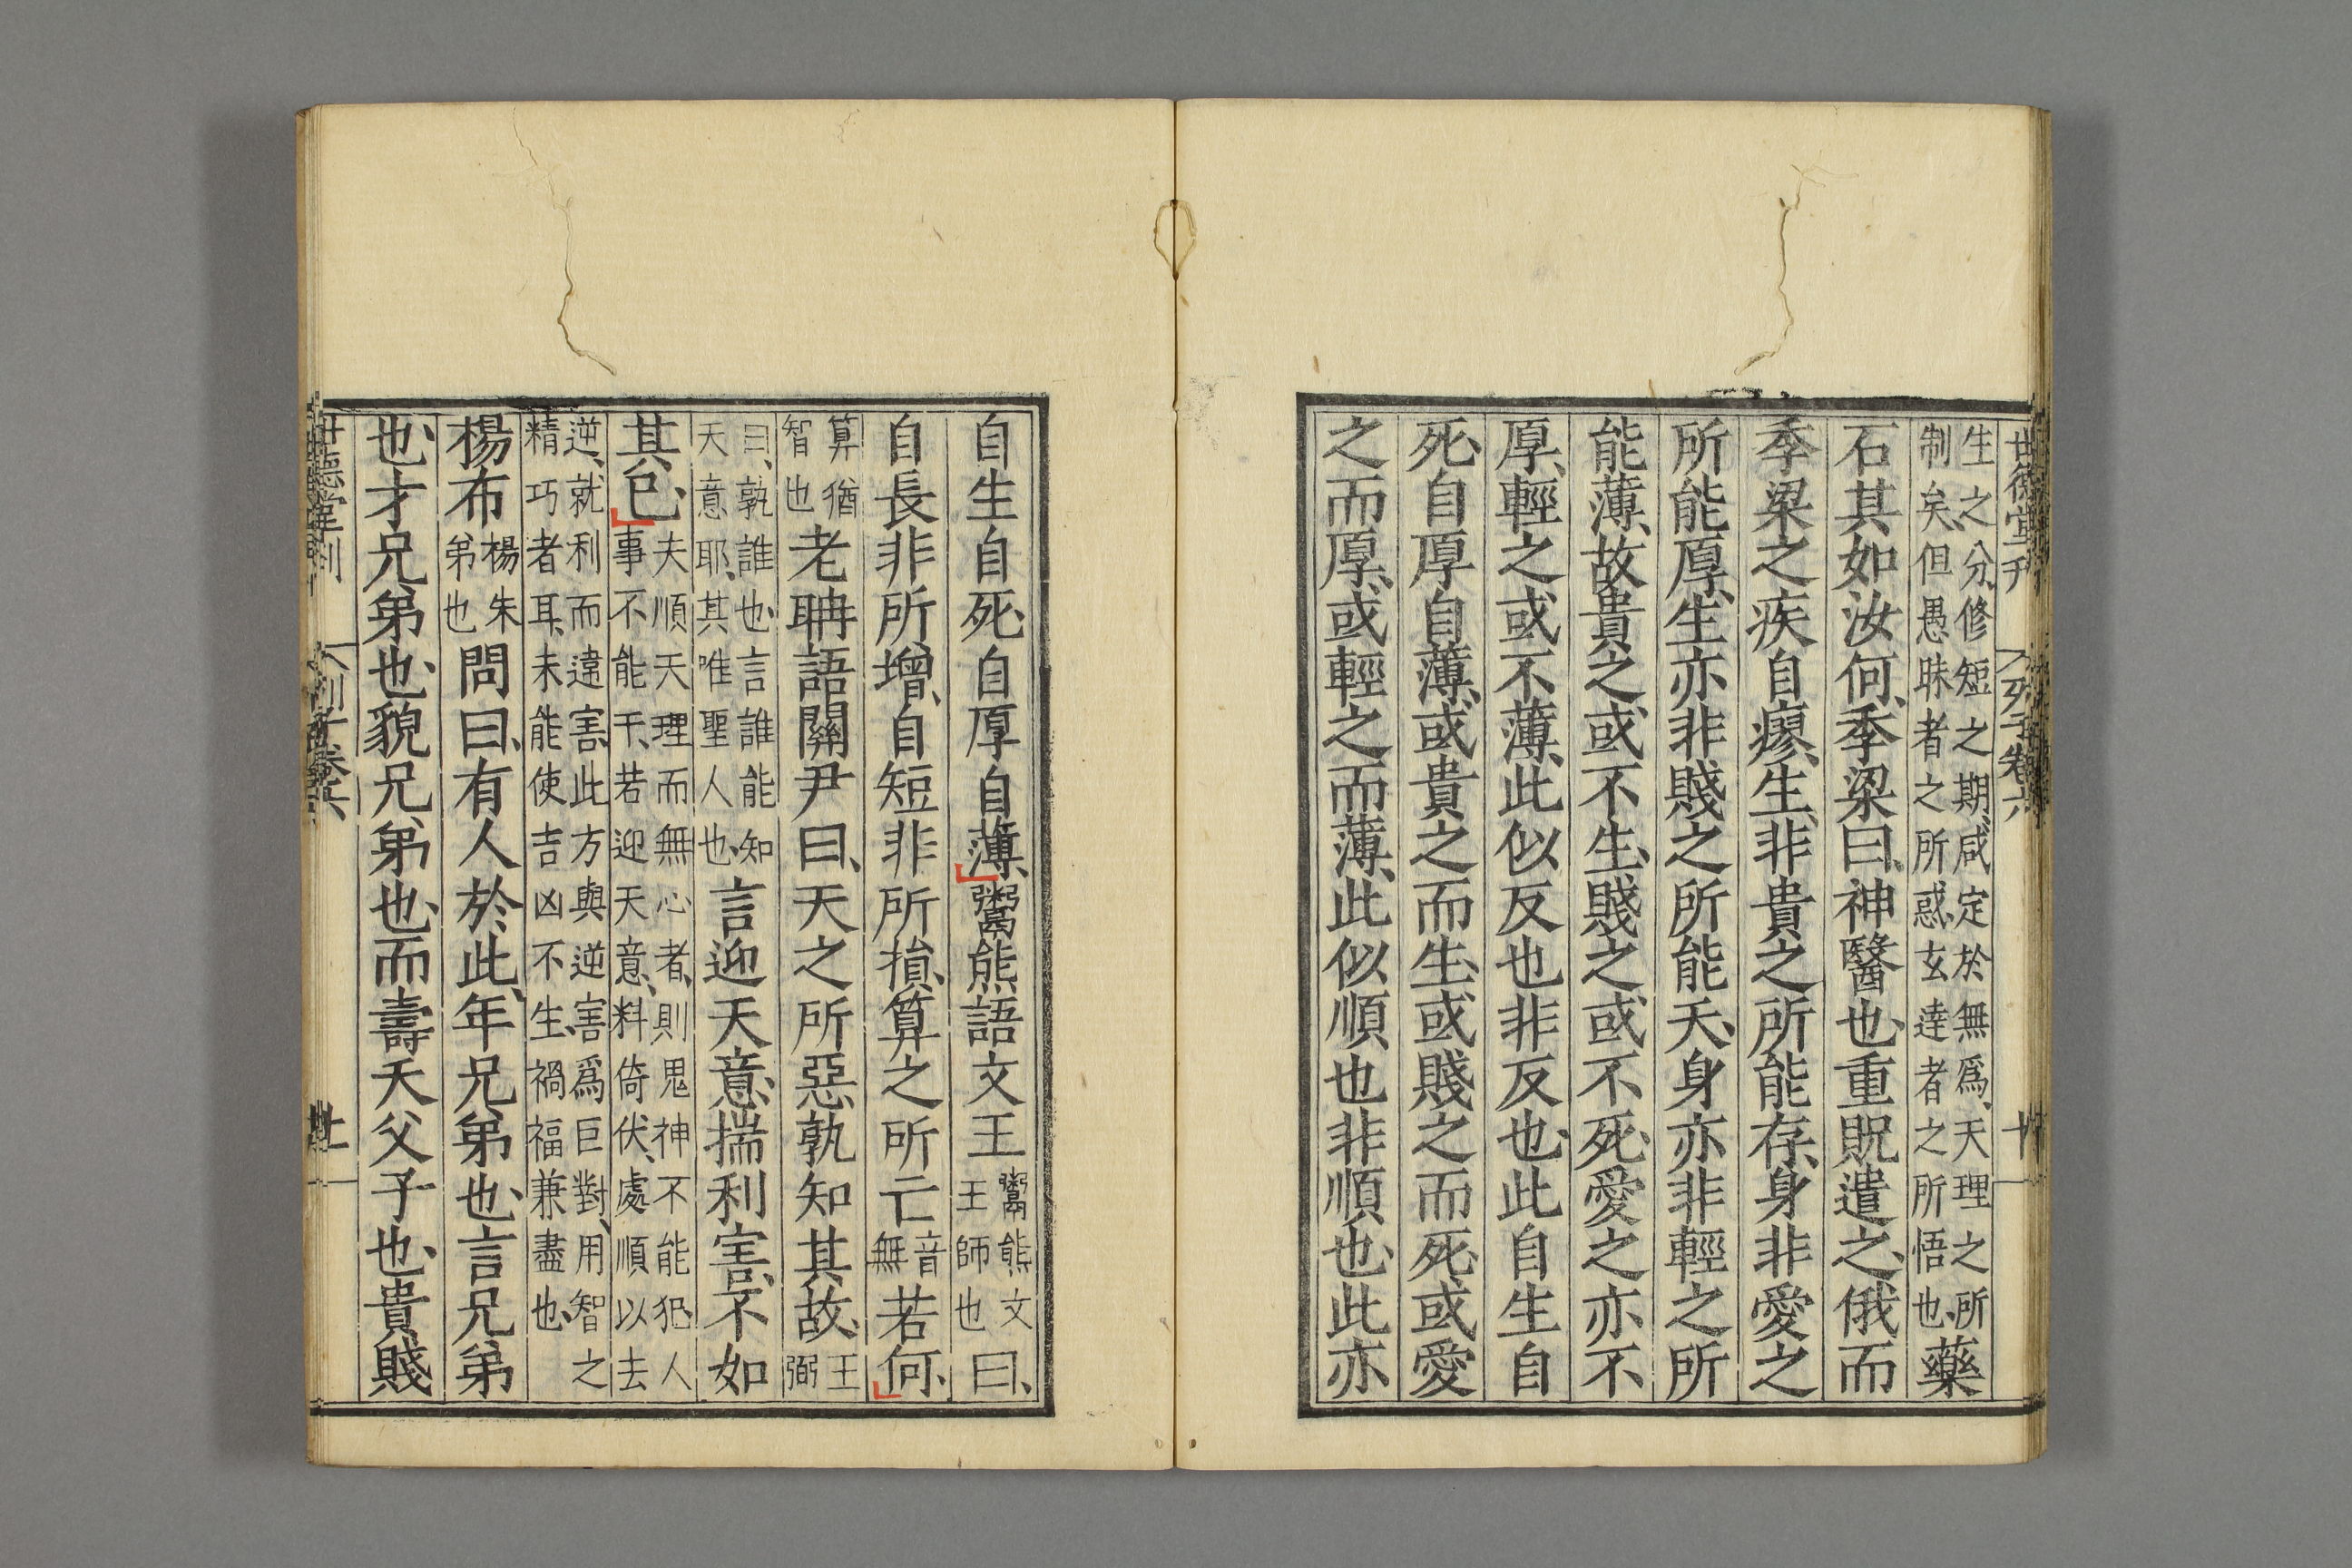 世德堂刊 列子卷六 十
生之分、修短之期、咸定於無爲、天理之所
制矣、但愚昧者之所惑、玄達者之所悟也、藥
石其如汝何、季梁曰、神醫也、重貺遣之、俄而
季梁之疾自瘳、生、非貴之所能存、身非愛之
所能厚、生亦非賤之所能夭、身亦非輕之所
能薄、故貴之或不生、賤之或不死、愛之亦不
厚、輕之或不薄、此似反也非反也、此自生自
死、自厚自薄、或貴之而生、或賤之而死、或愛
之而厚、或輕之而薄、此似順也非順也、此亦
自生自死、自厚自薄、鬻熊語文王鬻熊文王師也曰、
自長非所增、自短非所損、算之所亡音無若何、
算猶智也老聃語關尹曰、天之所惡、孰知其故、王弼
曰、孰誰也、言誰能知天意耶、其唯聖人也、言迎天意、揣利害、不如
其已、夫順天理而無心者、則鬼神不能犯、人
事不能干、若迎天意、料倚伏、處順以去
逆、就利而違害、此方與逆害爲巨對、用智之
精巧者耳、未能使吉凶不生、禍福兼盡也、
楊布楊朱弟也問曰、有人於此、年兄弟也、言兄弟
也、才兄弟也、貌兄弟也、而壽夭父子也、貴賤
世德堂刊 列子卷六 十一